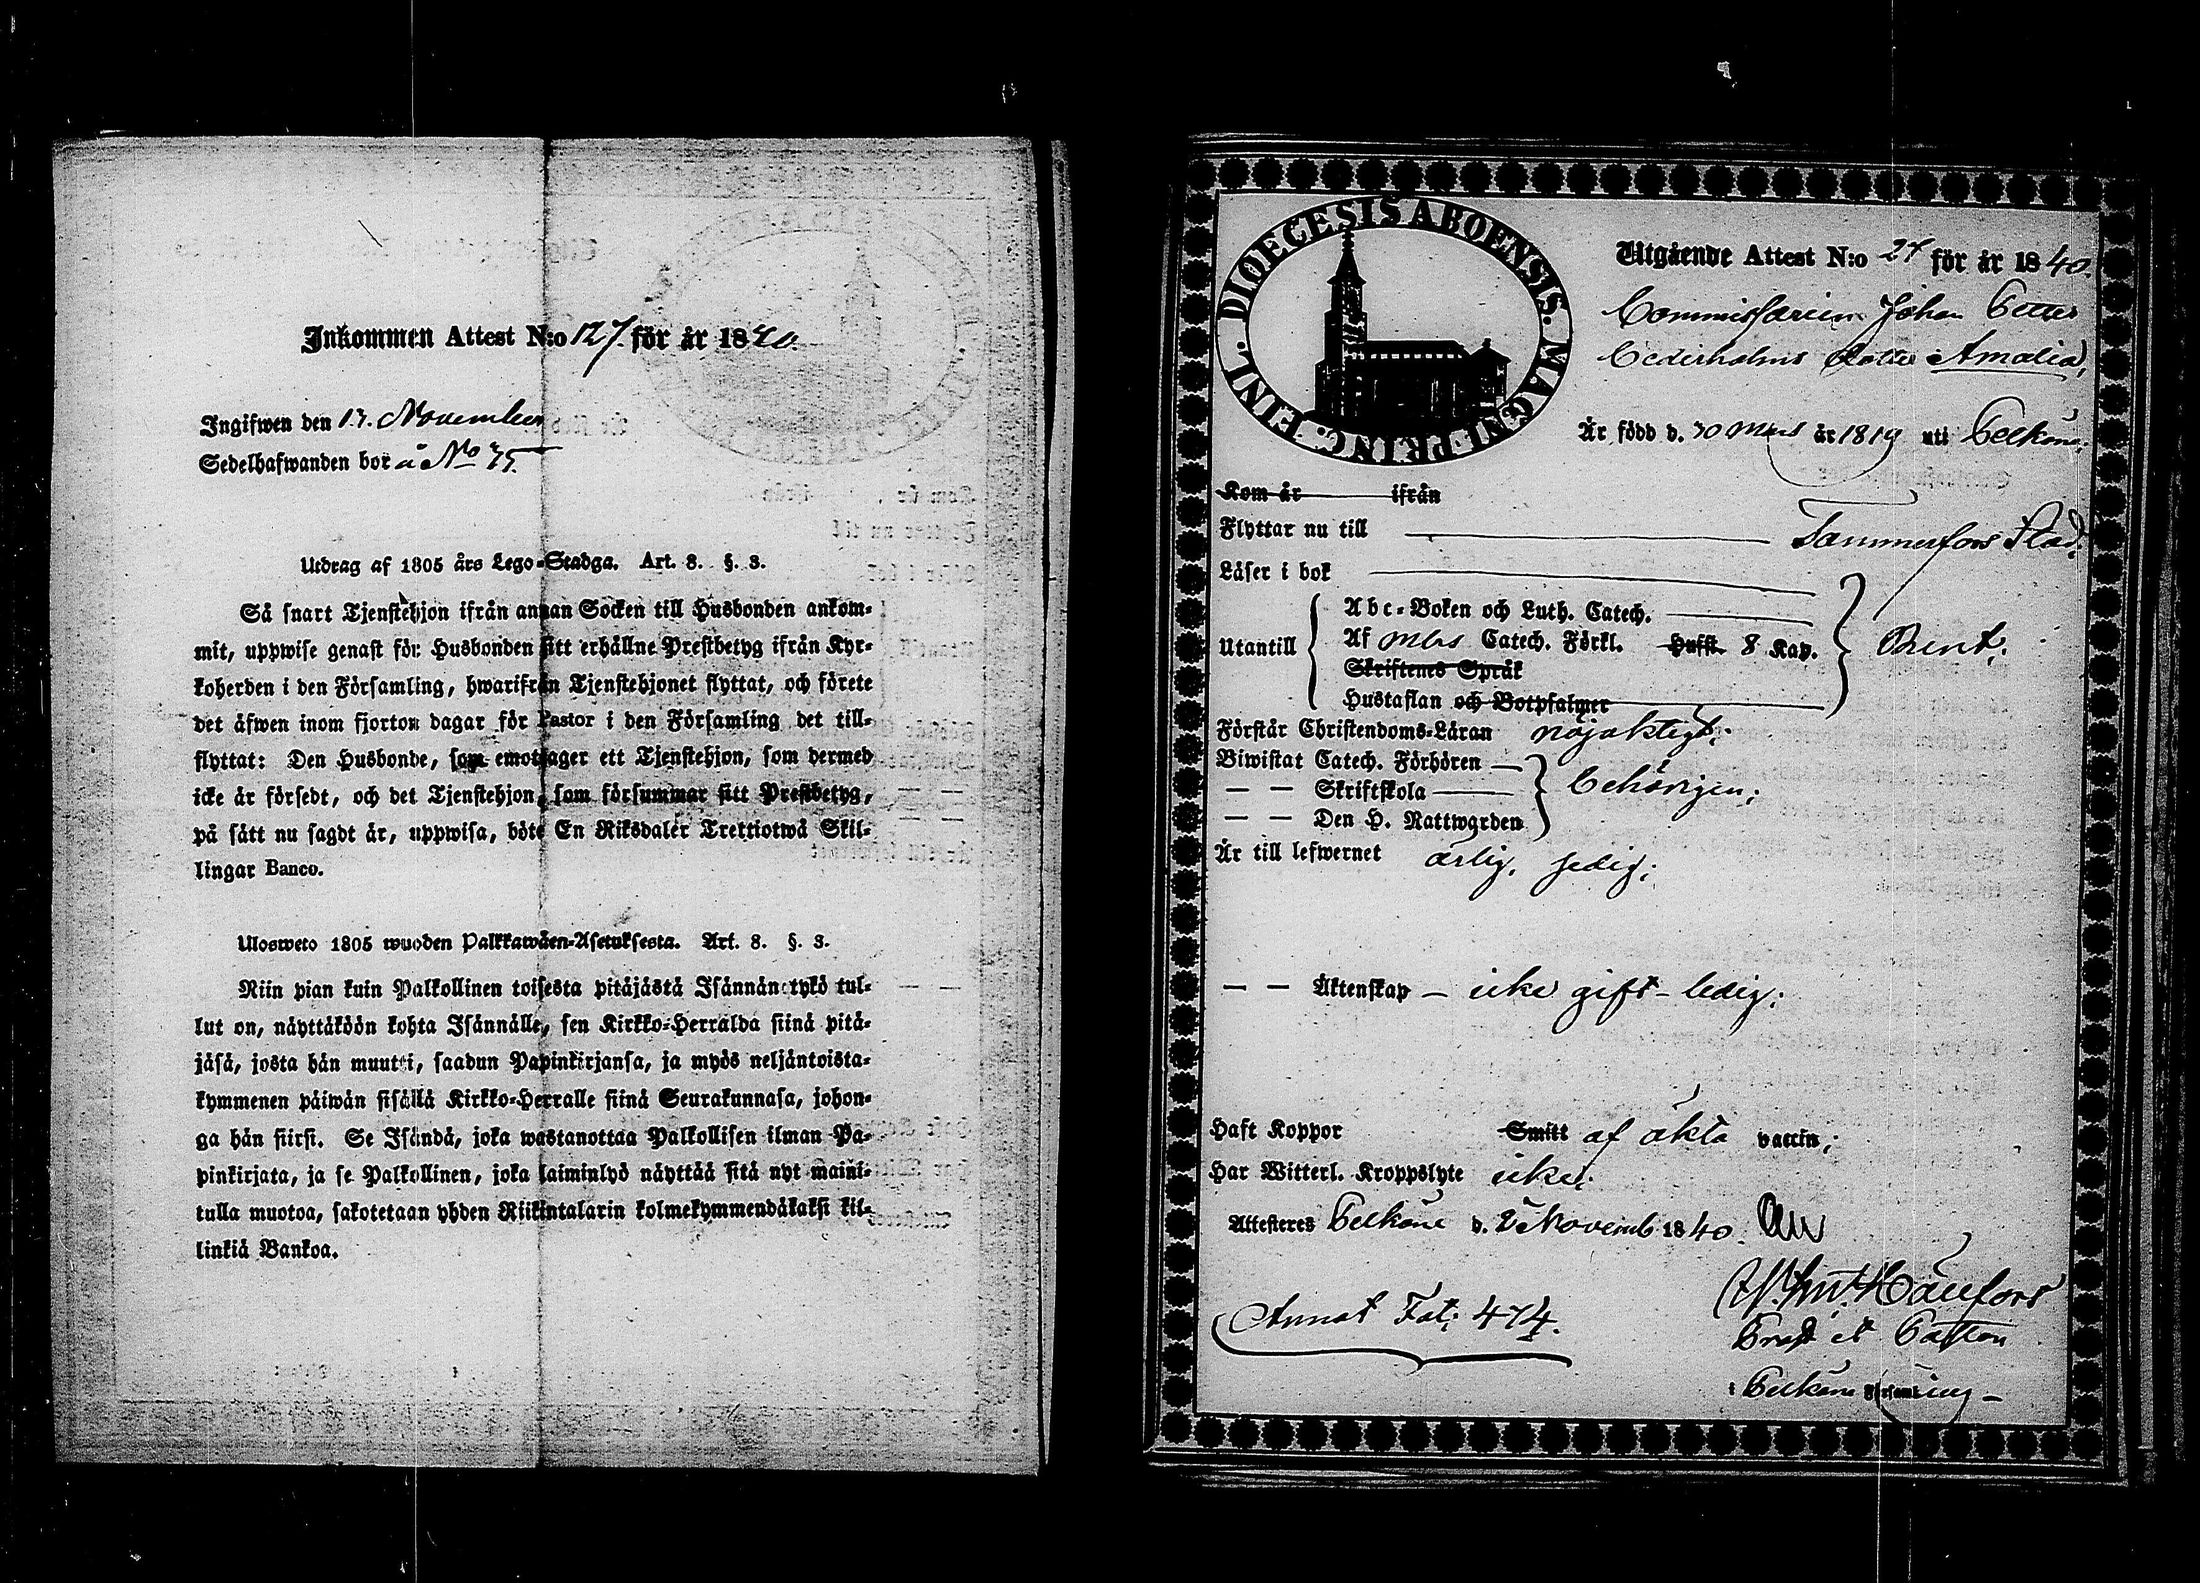 Inkommen Attest N:o 127. för år 1840.
Ingifwen den 13. November
Sedelhafwanden bor å No 75.
Utdrag af 1805 års Lego-Stadga. Art. 8. §. 3.
Så snart Tjenstehjon ifrån annan Socken till Husbonden ankom-
mit, uppwise genast för Husbonden sitt erhållne Prestbetyg ifrån Kyr-
koherden i den Församling, hwarifrån Tjenstehjonet flyttat, och förete
det äfwen inom fjorton dagar för Pastor i den Församling det till-
flyttat: Den Husbonde, som emottager ett Tjenstehjon, som dermed
icke är försedt, och det Tjenstehjon, som försummar sitt Prestbetyg,
på sätt nu sagdt är, uppwisa, böte En Riksdaler Trettiotwå Skil-
lingar Banco.
Ulosweto 1805 wuoden Palkkawäen-Asetuksesta. Art. 8. §. 3.
Niin pian kuin Palkollinen toisesta pitäjästä Isännän tykö tul-
lut on, näyttäköön kohta Isännälle, sen Kirkko-Herralda siinä pitä-
jäsä, josta hän muutti, saadun Papinkirjansa, ja myös neljäntoista-
kymmenen päiwän sisällä Kirkko-Herralle siinä Seurakunnasa, johon-
ga hän siirsi. Se Isändä, joka wastanottaa Palkollisen ilman Pa-
pinkirjata, ja se Palkollinen, joka laiminlyö näyttää sitä nyt maini-
tulla muotoa, sakotetaan yhden Riikintalarin kolmekymmendäkaksi kil-
linkiä Bankoa.
DIOECESIS ABOENSIS. MAGNI PRINC. FINL.
Utgående Attest N:o 27 för år 1840.
Commissarien Johan Petter
Cederholms dotter Amalia,
Är född d. 30 Mars år 1819 uti Pelkäne;
Kom år ifrån
Flyttar nu till Tammerfors Stad.
Läser i bok
Abc-Boken och Luth. Catech.
Utantill Af Mbs Catech. Förkl. Hufst. 8 Kap. Rent;
Skriftenes Språk
Hustaflan och Botpsalmer
Förstår Christendoms-Läran nöjaktigt;
Biwistat Catech. Förhören
— — Skriftskola behörigen;
— — Den H. Nattwarden
Är till lefwernet ärlig, sedig;
— — Äktenskap — icke gift — ledig;
Haft Koppor Smitt af äkta vaccin;
Har Witterl. Kroppslyte icke;
Attesteres Pelkäne d. 2 Novemb. 1840.
Annot Fol: 474.
Prost et Pastor
i Pelkäne Församling —